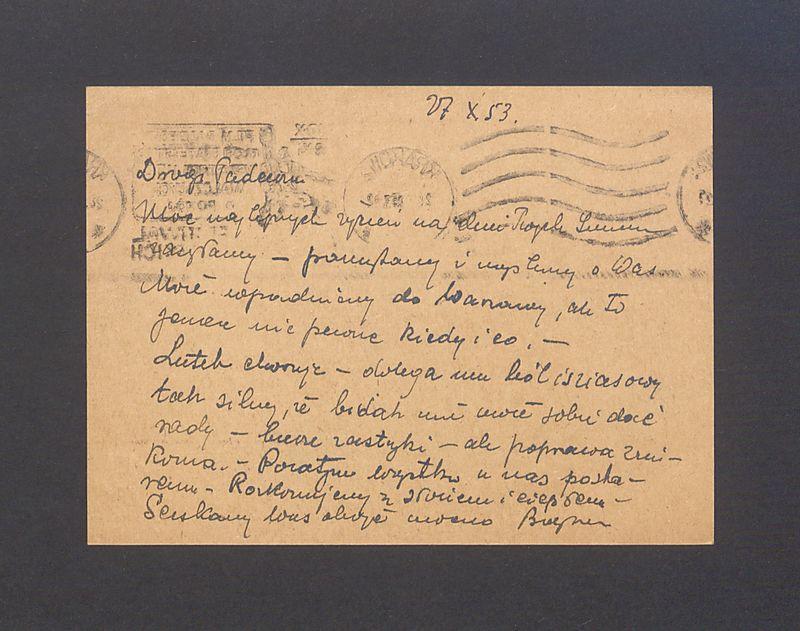 27 X 53.
Drogi Tadeuszu
Moc najlepszych życzeń na dzień Twych Imienin
zasyłamy – pamiętamy i myślimy o Was
Może wpadniemy do Warszawy, ale to
jeszcze nie pewne kiedy i co. –
Lutek choruje – dolega mu ból iszjasowy
tak silny, że bidak nie może sobie dać
rady – bierze zastrzyki – ale poprawa zni-
koma. – Poza tym wszystko u nas po sta-
remu – Rozkoszujemy się słońcem i ciepłem –
Ściskamy Was oboje mocno